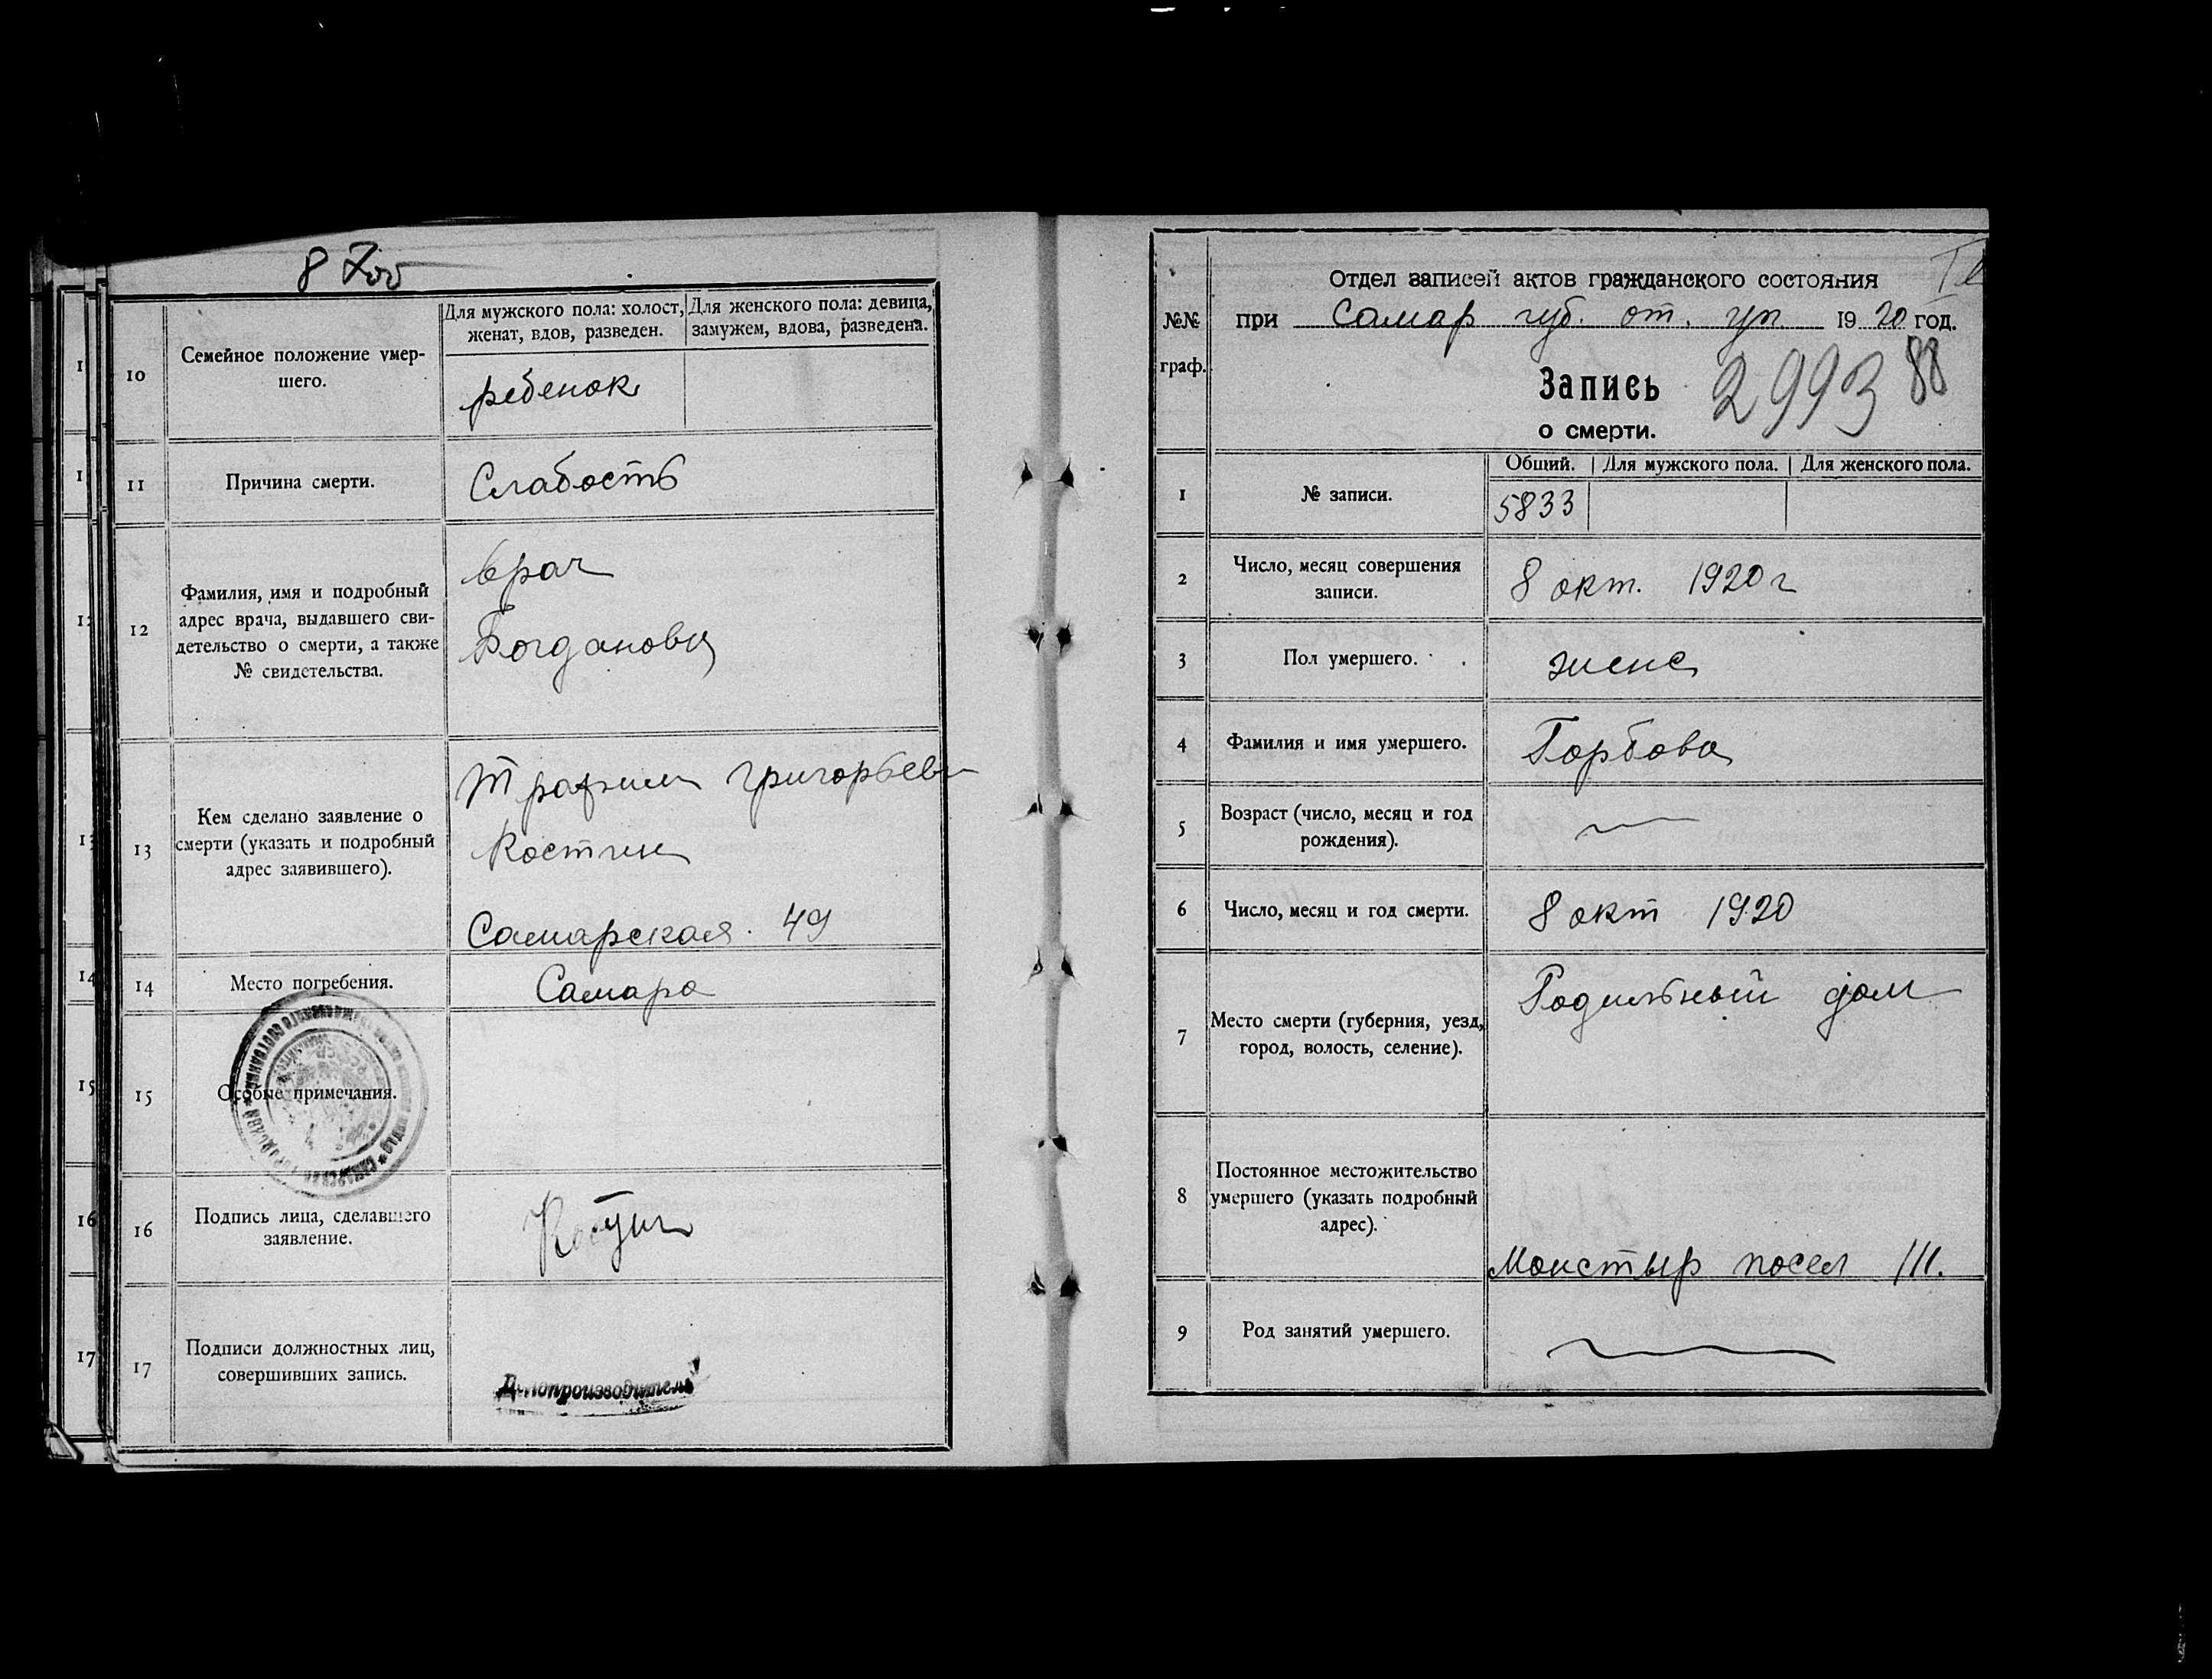 10
Семейное положение умер-
шего.
Для мужского пола: холост,
женат, вдов, разведен.
Для женского пола: девица,
замужем, вдова, разведена.
ребенок
11
Причина смерти.
Слабость
12
Фамилия, имя и подробный
адрес врача, выдавшего сви-
детельство о смерти, а также
№ свидетельства.
врач
Богданову
13
Кем сделано заявление о
смерти (указать и подробный
адрес заявившего).
Григорьев
Костин
Самарская. 49
14
Место погребения.
Самара
15
Особые примечания.
16
Подпись лица, сделавшего
заявление.
Костин
17
Подписи должностных лиц,
совершивших запись.
Делопроизводитель
№№
граф.
Отдел записей актов гражданского состояния
при Самар губ. от. уп. 1920 год.
Запись 2993 88
о смерти.
1
№ записи.
Общий. Для мужского пола. Для женского пола.
5833
2
Число, месяц совершения
записи.
8 окт. 1920 г
3
Пол умершего.
женс
4
Фамилия и имя умершего.
Горбова
5
Возраст (число, месяц и год
рождения).
6
Число, месяц и год смерти.
8 окт 1920
7
Место смерти (губерния, уезд,
город, волость, селение).
Родильный дом
8
Постоянное местожительство
умершего (указать подробный
адрес).
Монстыр посел 111.
9
Род занятий умершего.